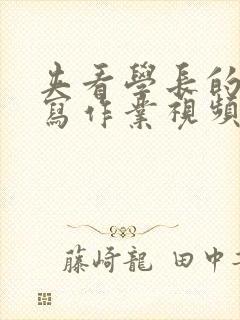 夫看學長的
寫作業視頻
藤崎龍 田中